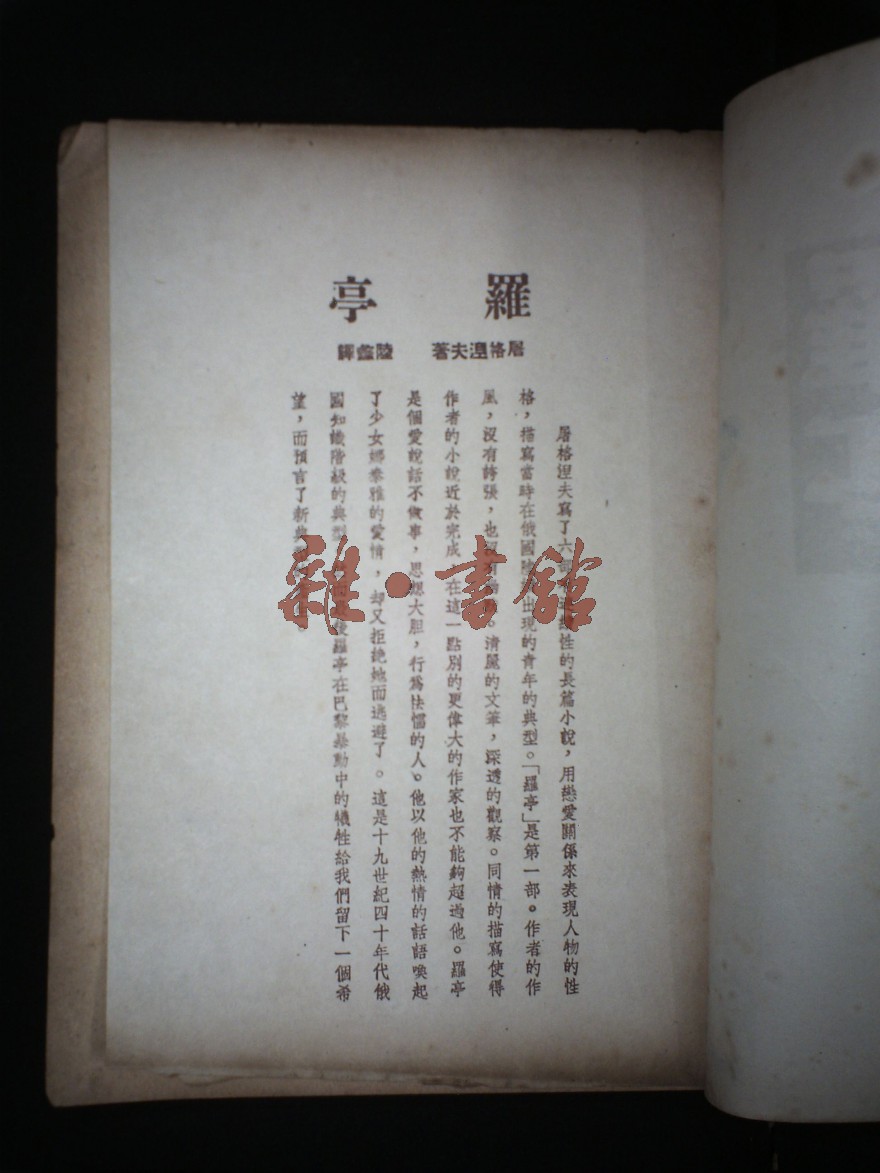 羅亭
屠格涅夫著　陸蠡譯
屠格涅夫寫了六部性的長篇小說，用戀愛關係來表現人物的性
格，描寫當時在俄國陸出現的青年的典型。「羅亭」是第一部。作者的作
風，沒有誇張，也沒有。清麗的文筆，深透的觀察。同情的描寫使得
作者的小說近於完成，在這一點別的更偉大的作家也不能夠超過他。羅亭
是個愛說話不做事，思想大胆，行為怯懦的人。他以他的熱情的話語喚起
了少女娜泰雅的愛情，却又拒絕她而逃避了。這是十九世紀四十年代俄
國知識階級的典型後羅亭在巴黎暴動中的犧牲給我們留下一個希
望，而預言了新典。
雜·書館